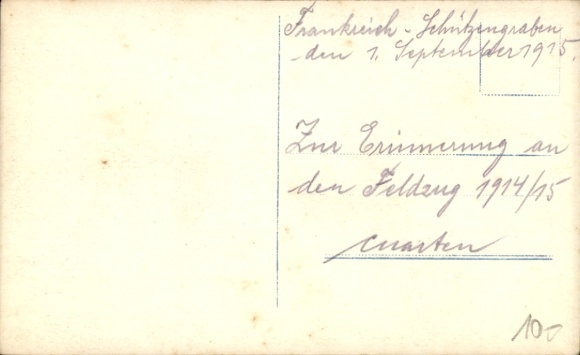 Frankreich - Schützengraben
den 1. September 1915.
Zur Erinnerung an
den Feldzug 1914/15
10-